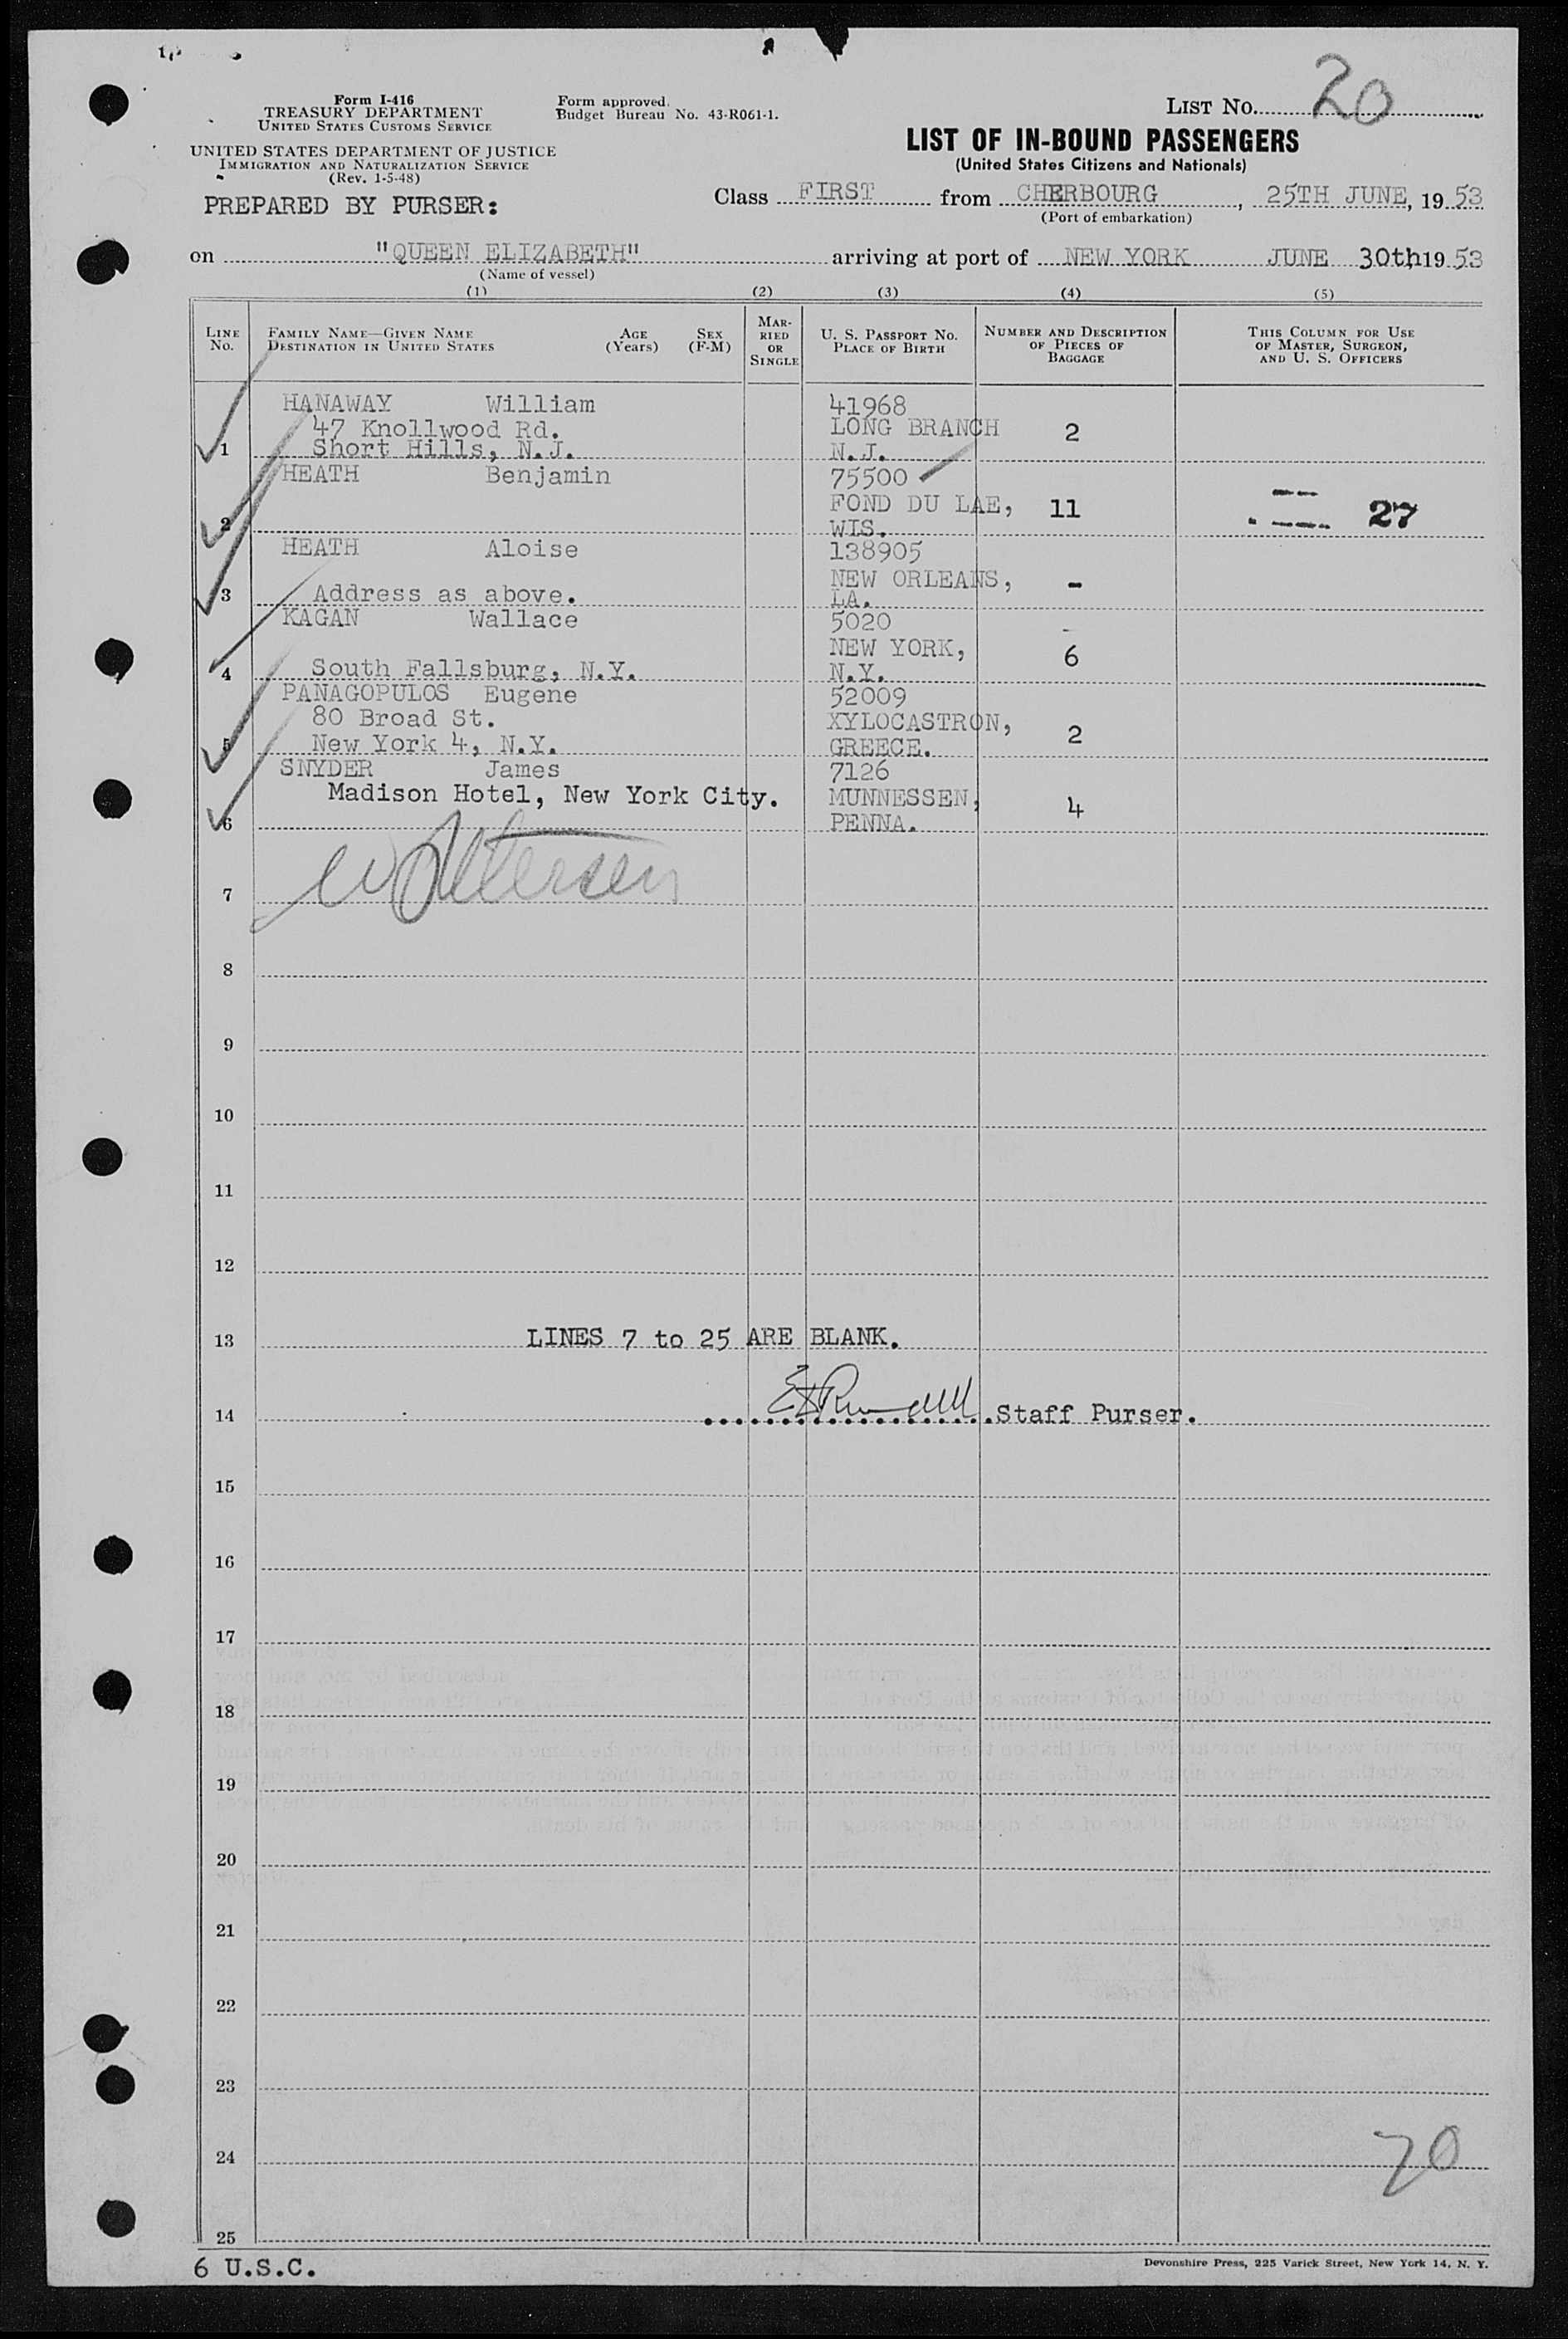 Form I-416
TREASURY DEPARTMENT
UNITED STATES CUSTOMS SERVICE
UNITED STATES DEPARTMENT OF JUSTICE
IMMIGRATION AND NATURALIZATION SERVICE
(Rev. 1-5-48)
Form approved.
Budget Bureau No. 43-R061-1.
LIST NO. 20
LIST OF IN-BOUND PASSENGERS
(United States Citizens and Nationals)
PREPARED BY PURSER:
Class FIRST from CHERBOURG, 25TH JUNE, 1953
(Port of embarkation)
on "QUEEN ELIZABETH" arriving at port of NEW YORK JUNE 30th 1953
(Name of vessel)
(1) (2) (3) (4) (5)
LINE NO.
FAMILY NAME—GIVEN NAME
DESTINATION IN UNITED STATES
AGE (Years)
SEX (F-M)
MARRIED OR SINGLE
U. S. PASSPORT NO.
PLACE OF BIRTH
NUMBER AND DESCRIPTION OF PIECES OF BAGGAGE
THIS COLUMN FOR USE OF MASTER, SURGEON, AND U. S. OFFICERS
HANAWAY William 41968
47 Knollwood Rd. LONG BRANCH 2
1 Short Hills, N.J. N.J.
HEATH Benjamin 75500
FOND DU LAE, 11 27
2 WIS.
HEATH Aloise 138905
NEW ORLEANS, -
3 Address as above. LA.
KAGAN Wallace 5020
NEW YORK, 6
4 South Fallsburg, N.Y. N.Y.
PANAGOPULOS Eugene 52009
80 Broad St. XYLOCASTRON, 2
5 New York 4, N.Y. GREECE.
SNYDER James 7126
Madison Hotel, New York City. MUNNESSEN, 4
6 PENNA.
7
8
9
10
11
12
13 LINES 7 to 25 ARE BLANK.
14 Staff Purser.
15
16
17
18
19
20
21
22
23
24
20
25
6 U.S.C.
Devonshire Press, 225 Varick Street, New York 14, N. Y.